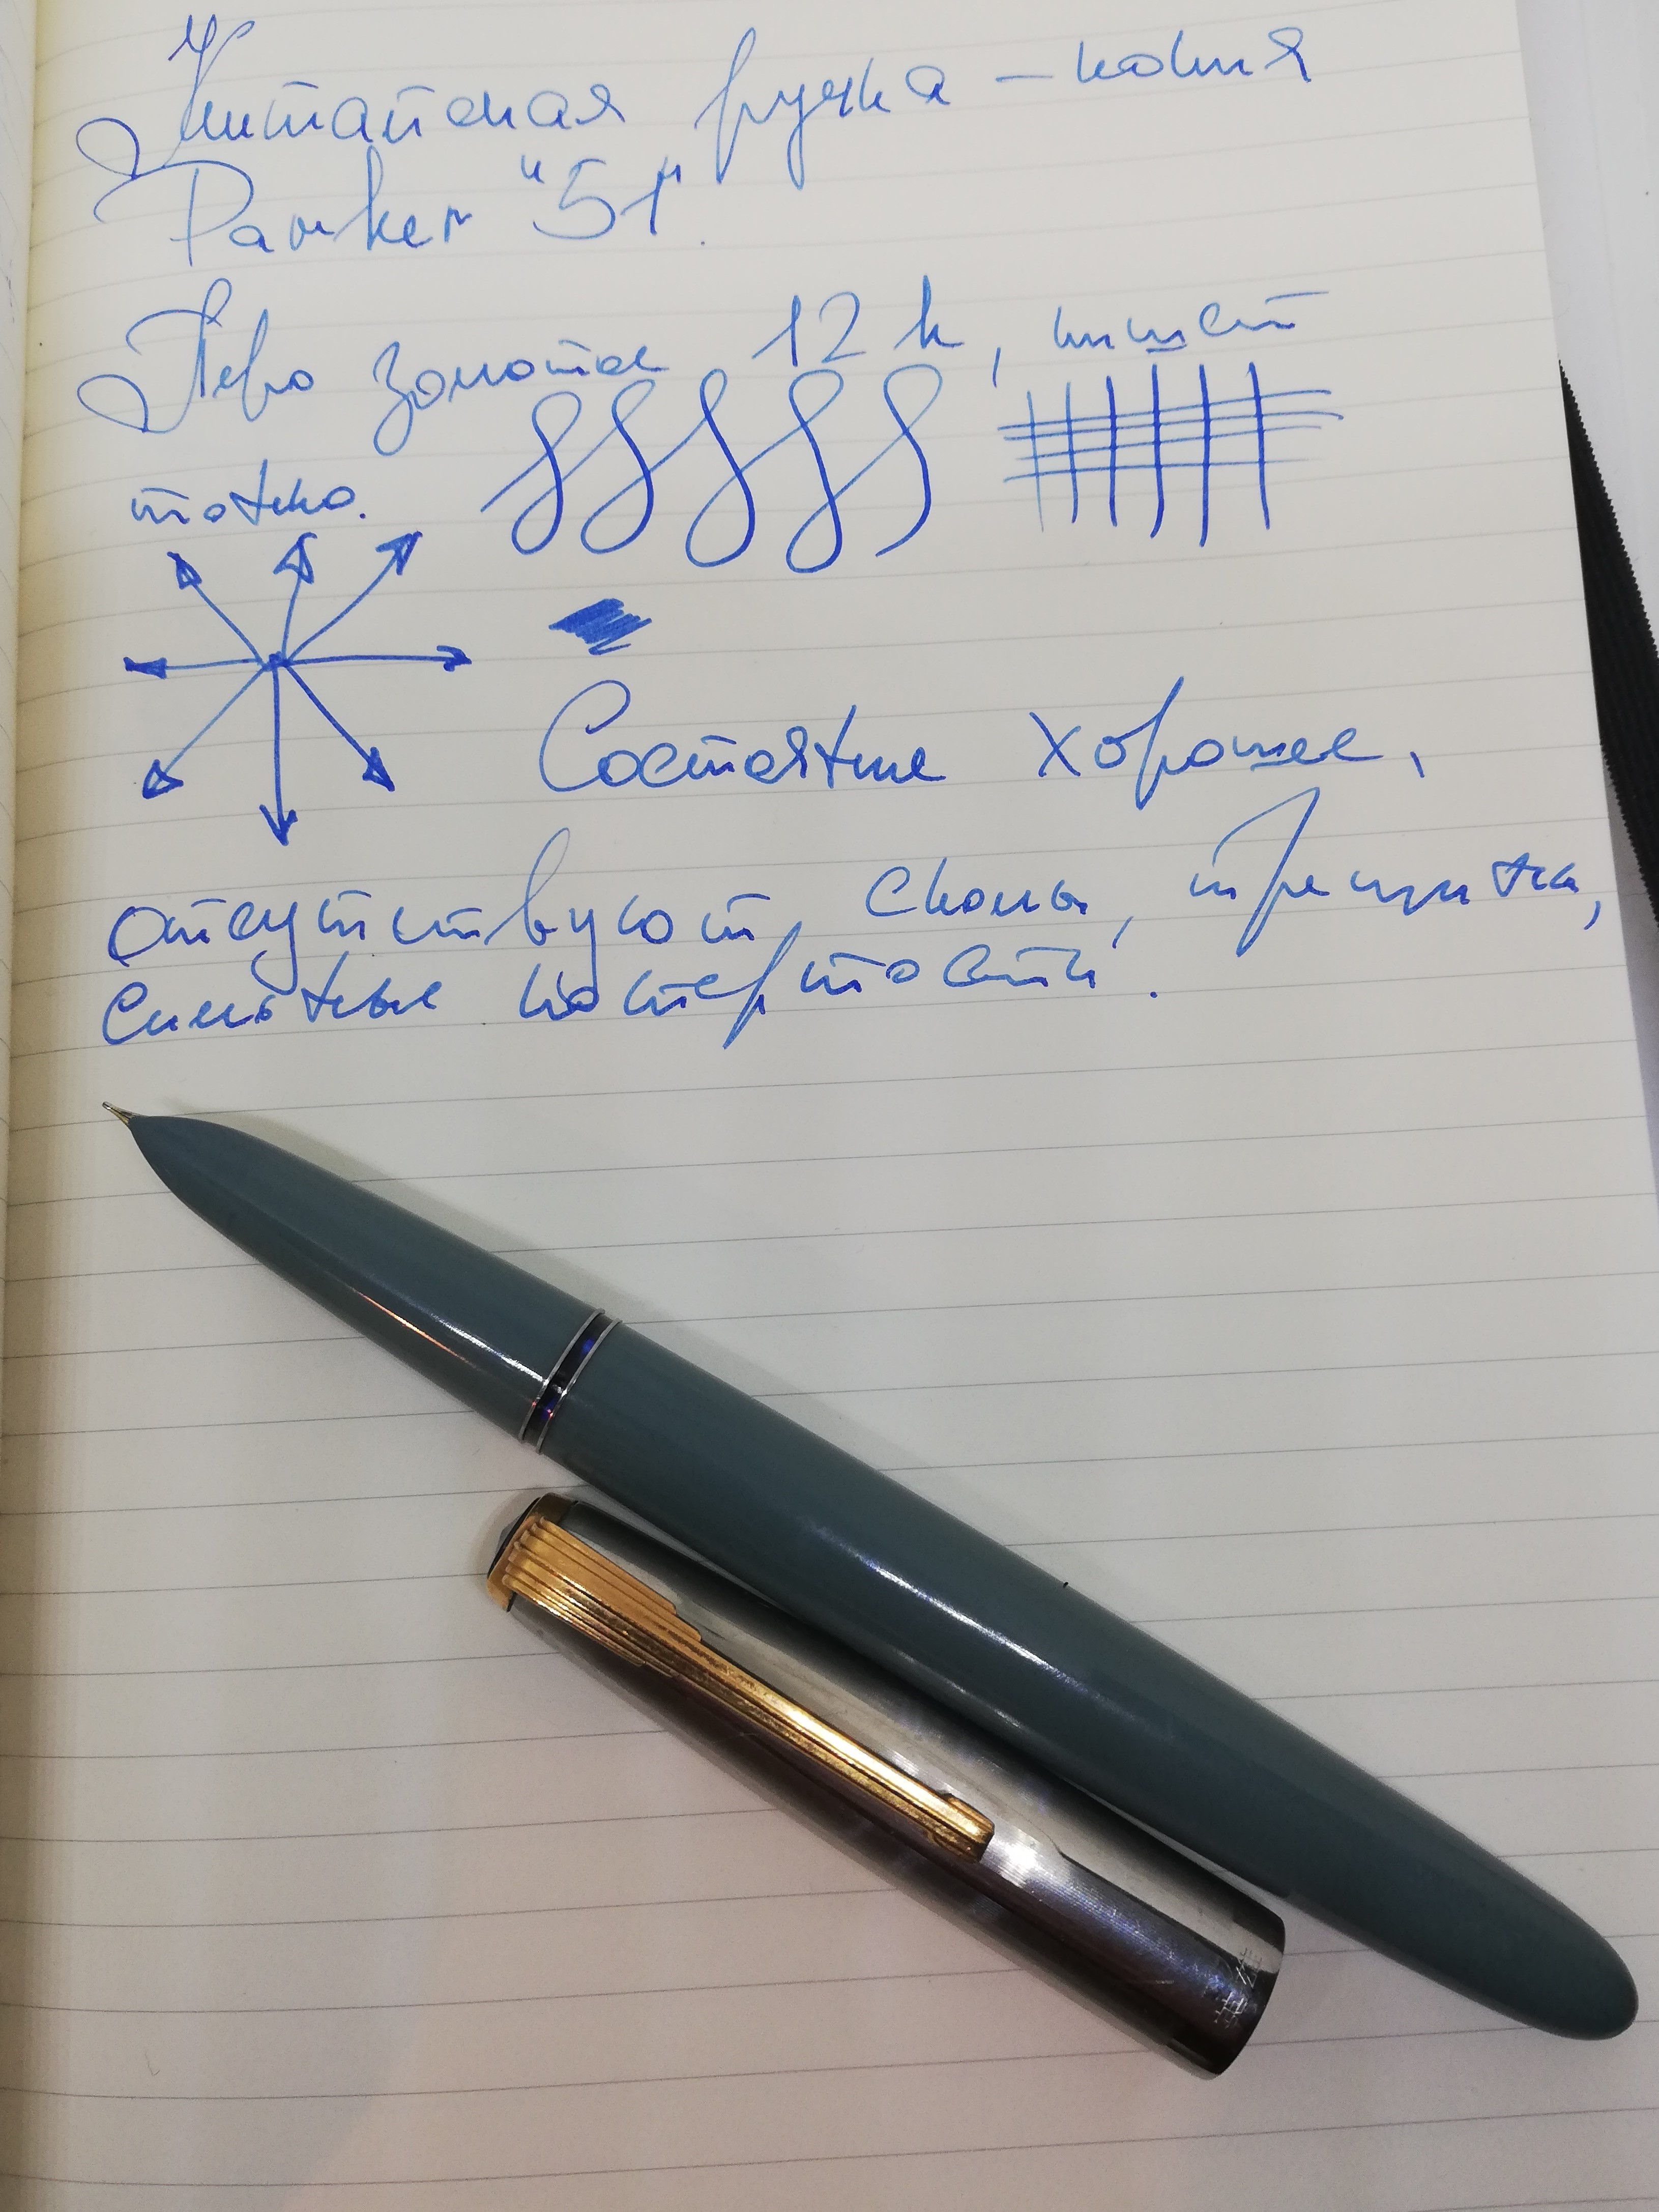 Китайская ручка – копия
Parker "51".
Перо золотое 12 k, пишет
тонко.
Состояние хорошее,
отсутствуют сколы, трещины,
сильные потертости.